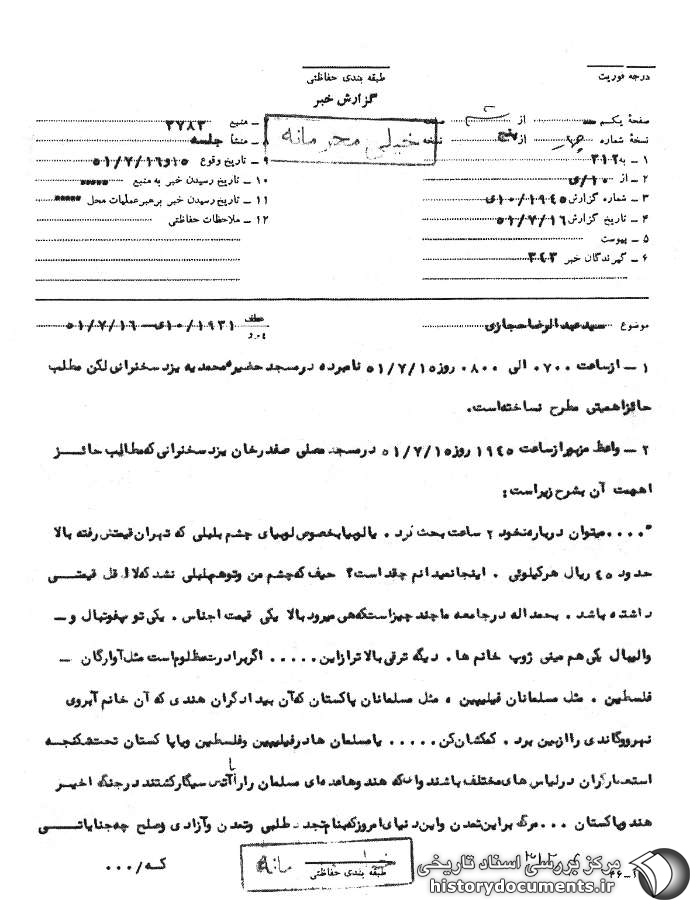 درجه فوریت
طبقه بندی حفاظتی
گزارش خبر
صفحهٔ یکم از صفحه
نسخهٔ شماره چهار از پنج نسخه
خیلی محرمانه
۱ - به ۳۱۲
۲ - از ۱۰/ی
۳ - شماره گزارش ۱۰/۱۹۴۵ی
۴ - تاریخ گزارش ۵۱/۷/۱۶
۵ - پیوست
۶ - گیرندگان خبر ۳۴۳
۷ - منبع ۲۷۸۳
۸ - منشأ جلسه
۹ - تاریخ وقوع ۱۵و۵۱/۷/۱۶
۱۰ - تاریخ رسیدن خبر به منبع
۱۱ - تاریخ رسیدن خبر برهبر عملیات محل
۱۲ - ملاحظات حفاظتی
موضوع سیدعبدالرضا حجازی
عطف ۱۰/۱۹۳۱ی - ۵۱/۷/۱۶
۱ - از ساعت ۰۷۰۰ الی ۰۸۰۰ روز ۵۱/۷/۱۵ نامبرده در مسجد حضیره محمدیه یزد سخنرانی لکن مطلب
حائز اهمیتی مطرح نساخته است.
۲ - واعظ مزبور از ساعت ۱۹۴۵ روز ۵۱/۷/۱۵ در مسجد مصلی صفدرخان یزد سخنرانی که مطالب حائز
اهمیت آن بشرح زیر است:
"....میتوان درباره نخود ۲ ساعت بحث کرد . یا لوبیا بخصوص لوبیای چشم بلبلی که تهران قیمتش رفته بالا
حدود ۴۵ ریال هر کیلوئی . اینجا نمیدانم چقد است؟ حیف که چشم من و تو هم بلبلی نشد که لااقل قیمتی
داشته باشد . بحمداله در جامعه ما چند چیز است که هی میرود بالا یکی قیمت اجناس . یکی توپ فوتبال و -
والیبال یکی هم مینی ژوپ خانم ها . دیگه ترقی بالاتر از این ..... اگر برادرت مظلوم است مثل آوارگان -
فلسطین . مثل مسلمانان فیلیپین ، مثل مسلمانان پاکستان که آن بیدادگران هندی که آن خانم آبروی
نهرو و گاندی را از بین برد . کمکشان کن ..... یا مسلمان ها در فیلیپین و فلسطین و یا پاکستان تحت شکنجه
استعمارگران در لباس های مختلف باشند و آن که هندوها عده ای مسلمان را با آتش سیگار کشتند در جنگ اخیر
هند و پاکستان ... مرگ بر این تمدن و این دنیای امروز که بنام تجدد طلبی و تمدن و آزادی و صلح چه جنایاتی
که / ...
خیلی محرمانه
طبقه بندی حفاظتی
مرکز بررسی اسناد تاریخی
historydocuments.ir